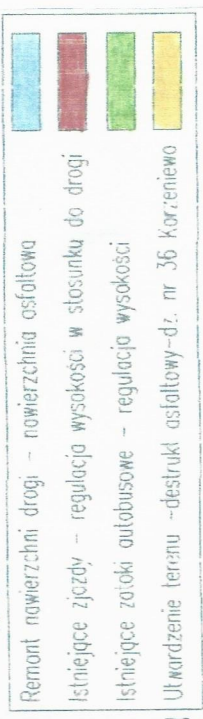 Remont nawierzchni drogi – nawierzchnia asfaltowa
Istniejące zjazdy – regulacja wysokości w stosunku do drogi
Istniejące zatoki autobusowe – regulacja wysokości
Utwardzenie terenu –destrukt asfaltowy–dz. nr 36 Korzeniewo